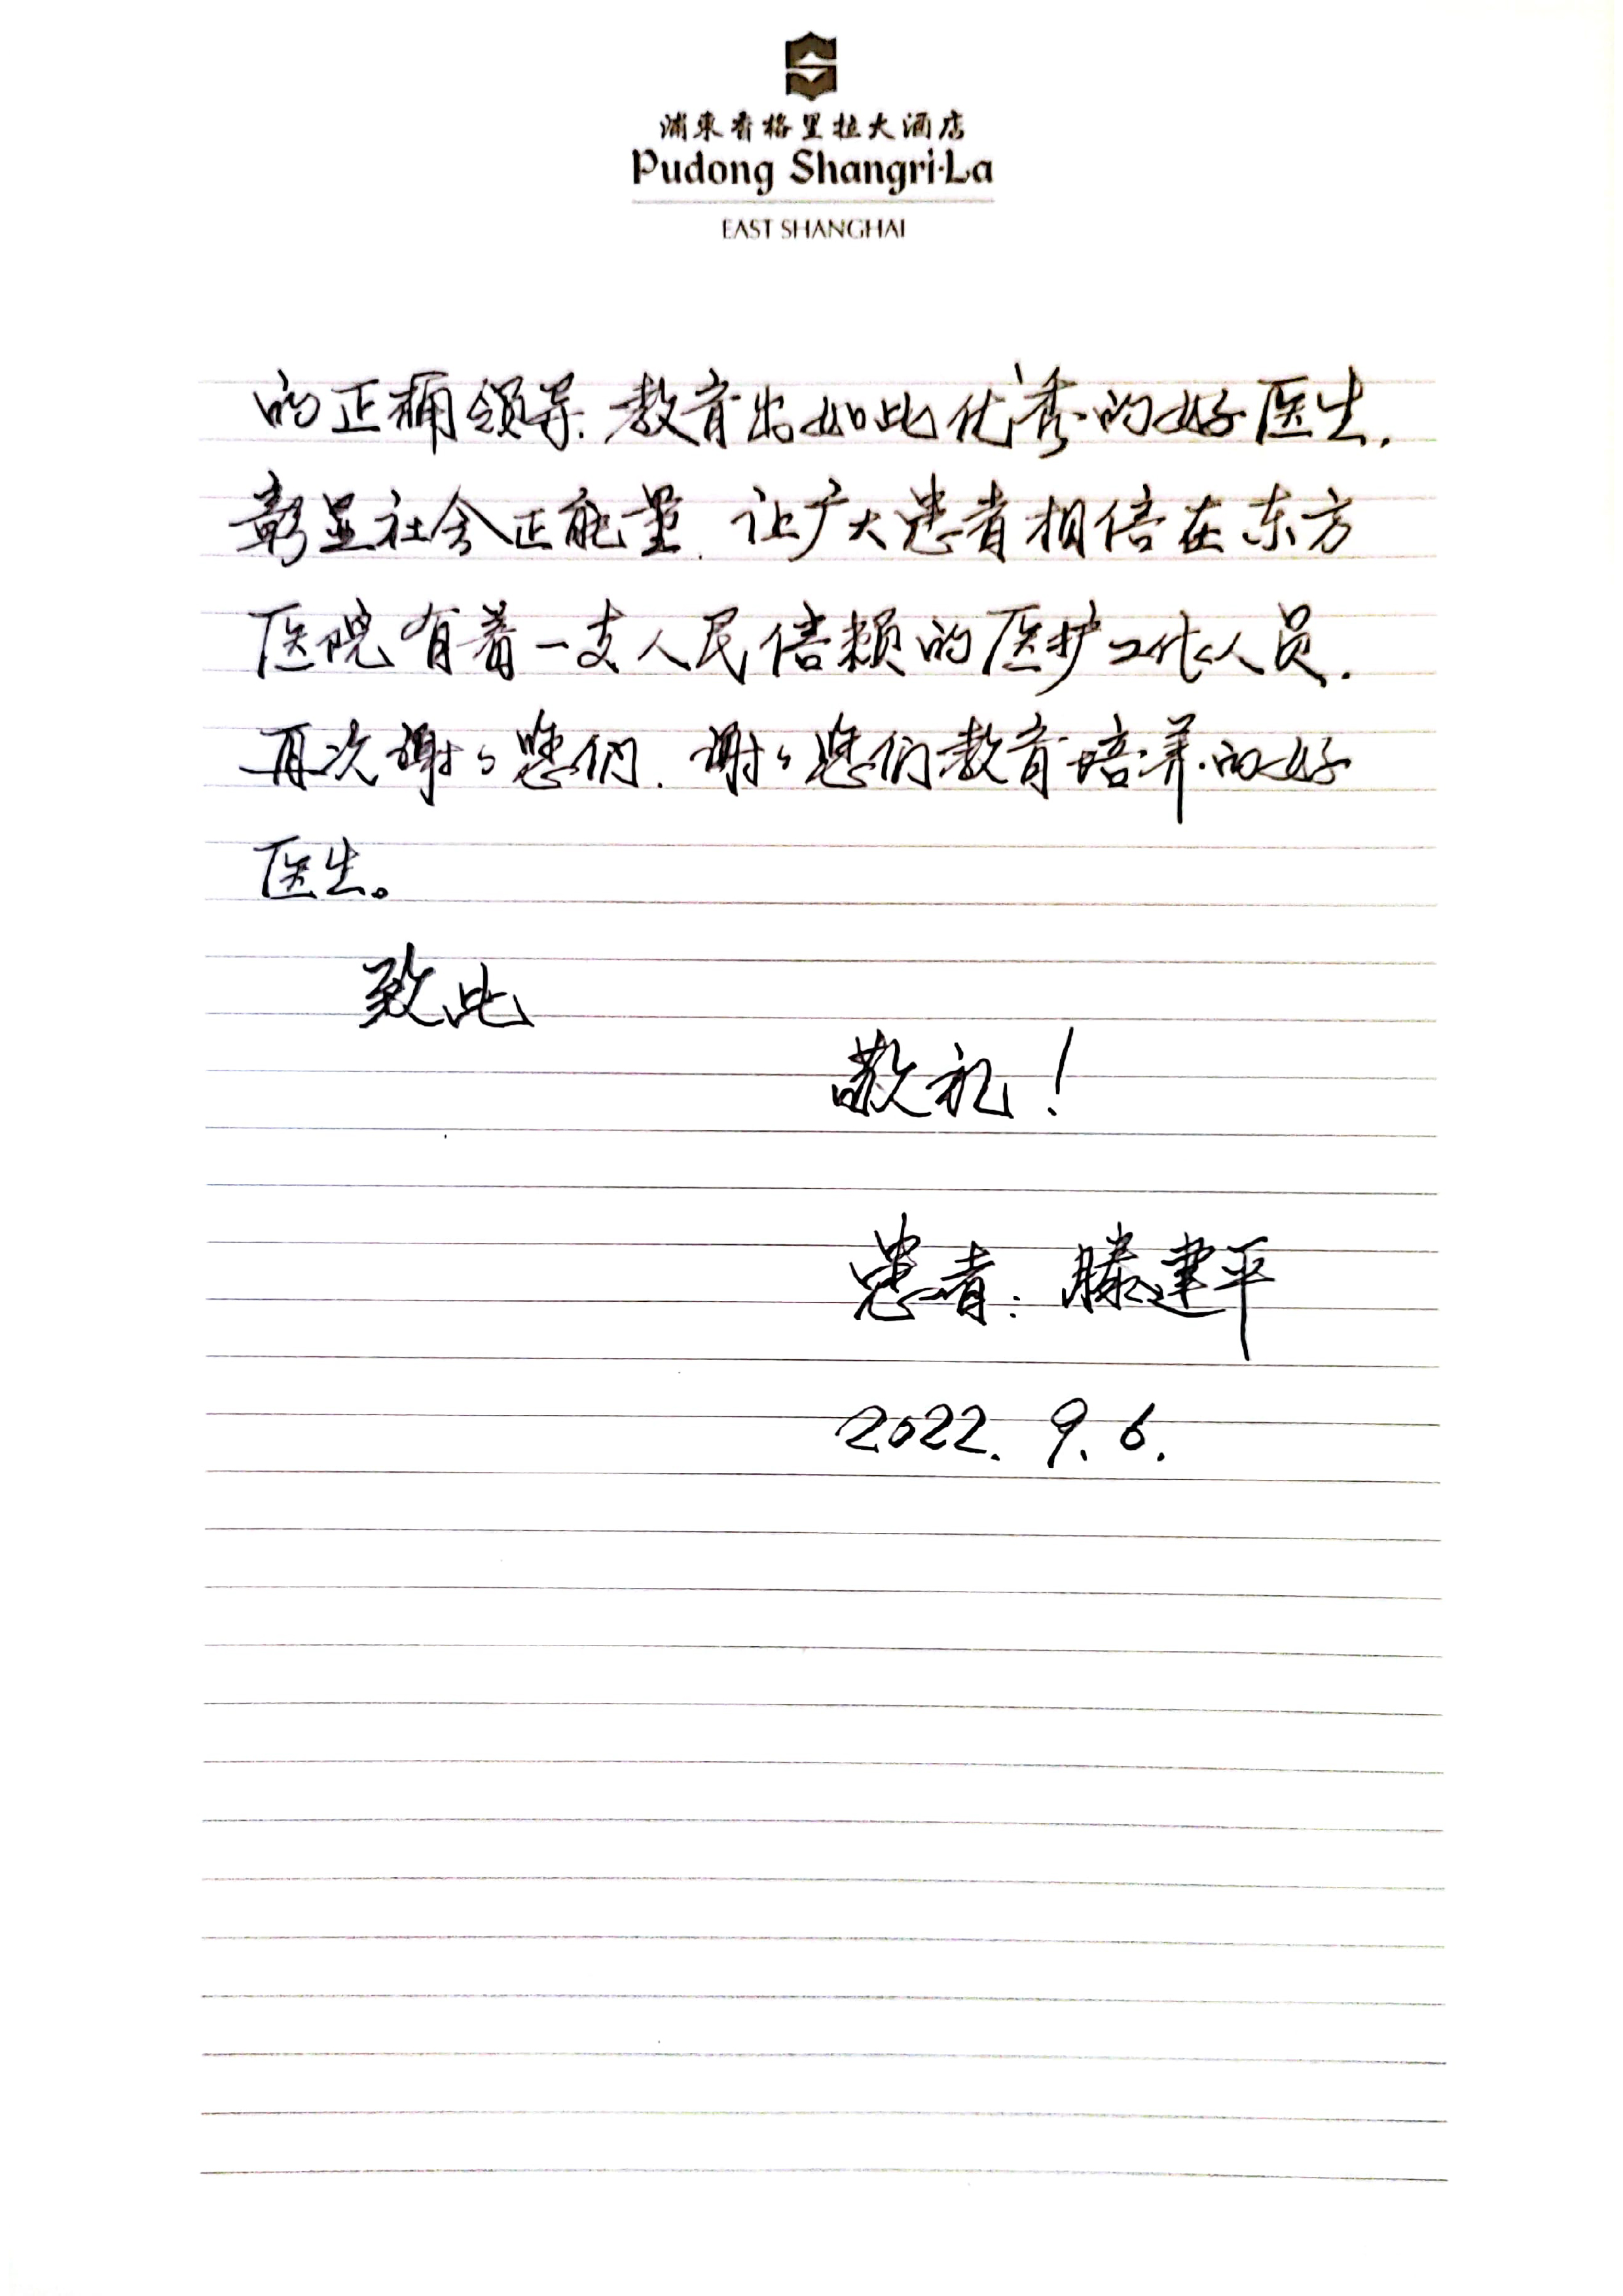 浦東香格里拉大酒店
Pudong Shangri-La
EAST SHANGHAI
的正确领导.教育出如此优秀的好医生.
彰显社会正能量.让广大患者相信在东方
医院有着一支人民信赖的医护工作人员.
再次谢谢您们.谢谢您们教育培养的好
医生。
致此
敬礼!
患者:滕建平
2022.9.6.